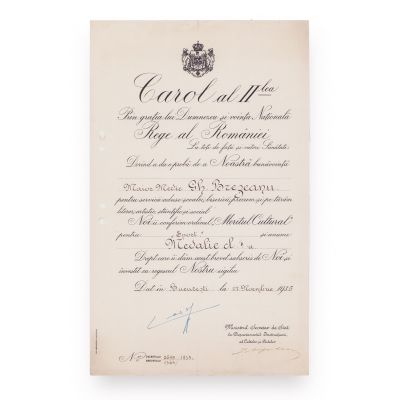 Carol al II-lea
Prin grația lui Dumnezeu și voința Națională
Rege al României
La toți de față și viitori Sănătate:
Dorind a da o probă de a Noastră bunăvoință
Maior Medic Gh. Brezeanu
pentru servicii aduse școalei, bisericii, precum și pe tărâm
literar, artistic, științific și social
Noi îi conferim ordinul "Meritul Cultural"
pentru "Sport" și anume
Medalie cl.
Drept care îi dăm acest brevet subscris de Noi și
investit cu regescul Nostru sigiliu
Dat în București la Noembrie 1935
Ministrul Secretar de Stat
la Departamentul Instrucțiunii,
al Cultelor și Artelor
No